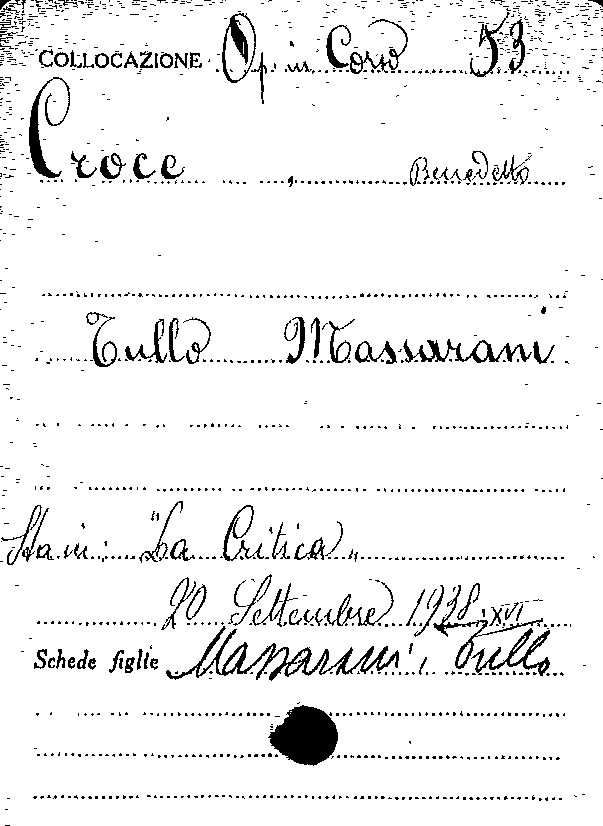 COLLOCAZIONE Op. in Corso 53
Croce , Benedetto
Tullo Massarani
Sta in: "La Critica"
20 Settembre 1938. XVI
Schede figlie Massarani, Tullo